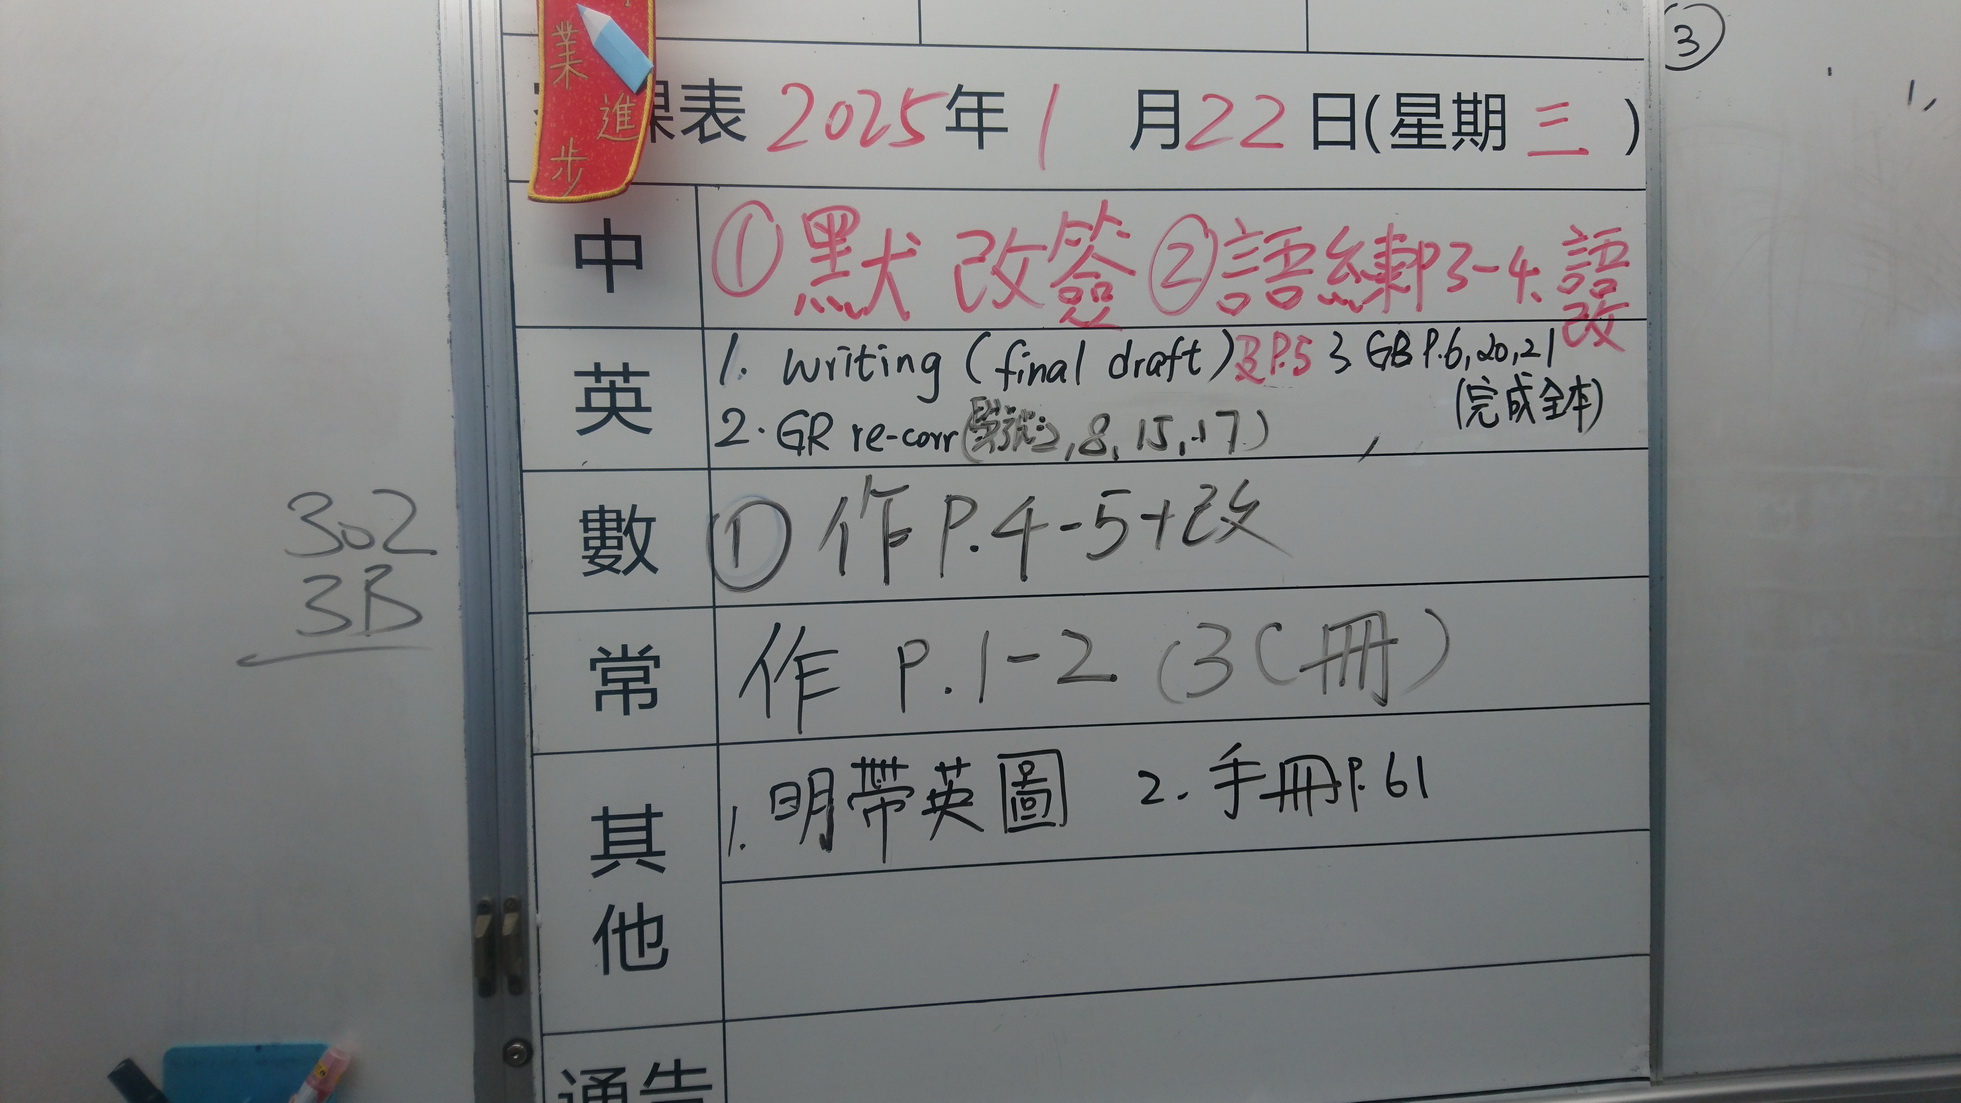 業
進
步
課表 2025年 1 月 22 日(星期 三 )
③
中 ① 默 改簽 ② 語練P3-4、語改
英 1. writing (final draft) 及P.5 3 GB P.6,20,21
(完成全本)
2. GR re-corr ( ,8, 15, 17)
數 ① 作 P.4-5+改
常 作 P.1-2 (3C冊)
其他 1. 明帶英圖 2. 手冊P.61
通告
302
3B